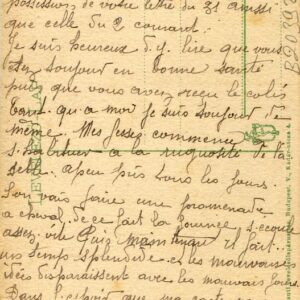 possession de votre lettre du 31 aussi
que celle du 2 courant.
Je suis heureux d'y lire que vous
êtes toujour en bonne santé
puis que vous avez reçu le colis
tant qu'a moi je suis toujour de
même. Mes fesses commence a
s'habituer a la rugosité de la
selle. a peu pres tous les jours.
Je vais faire une promenade
a cheval. de ce fait la journée s'écoule
assez vite. Puis maintenant il fait
un temps splendide et les mauvaises
idées disparaissent avec les mauvais jours
Dans l'espoir que ma carte
Budapest, V.